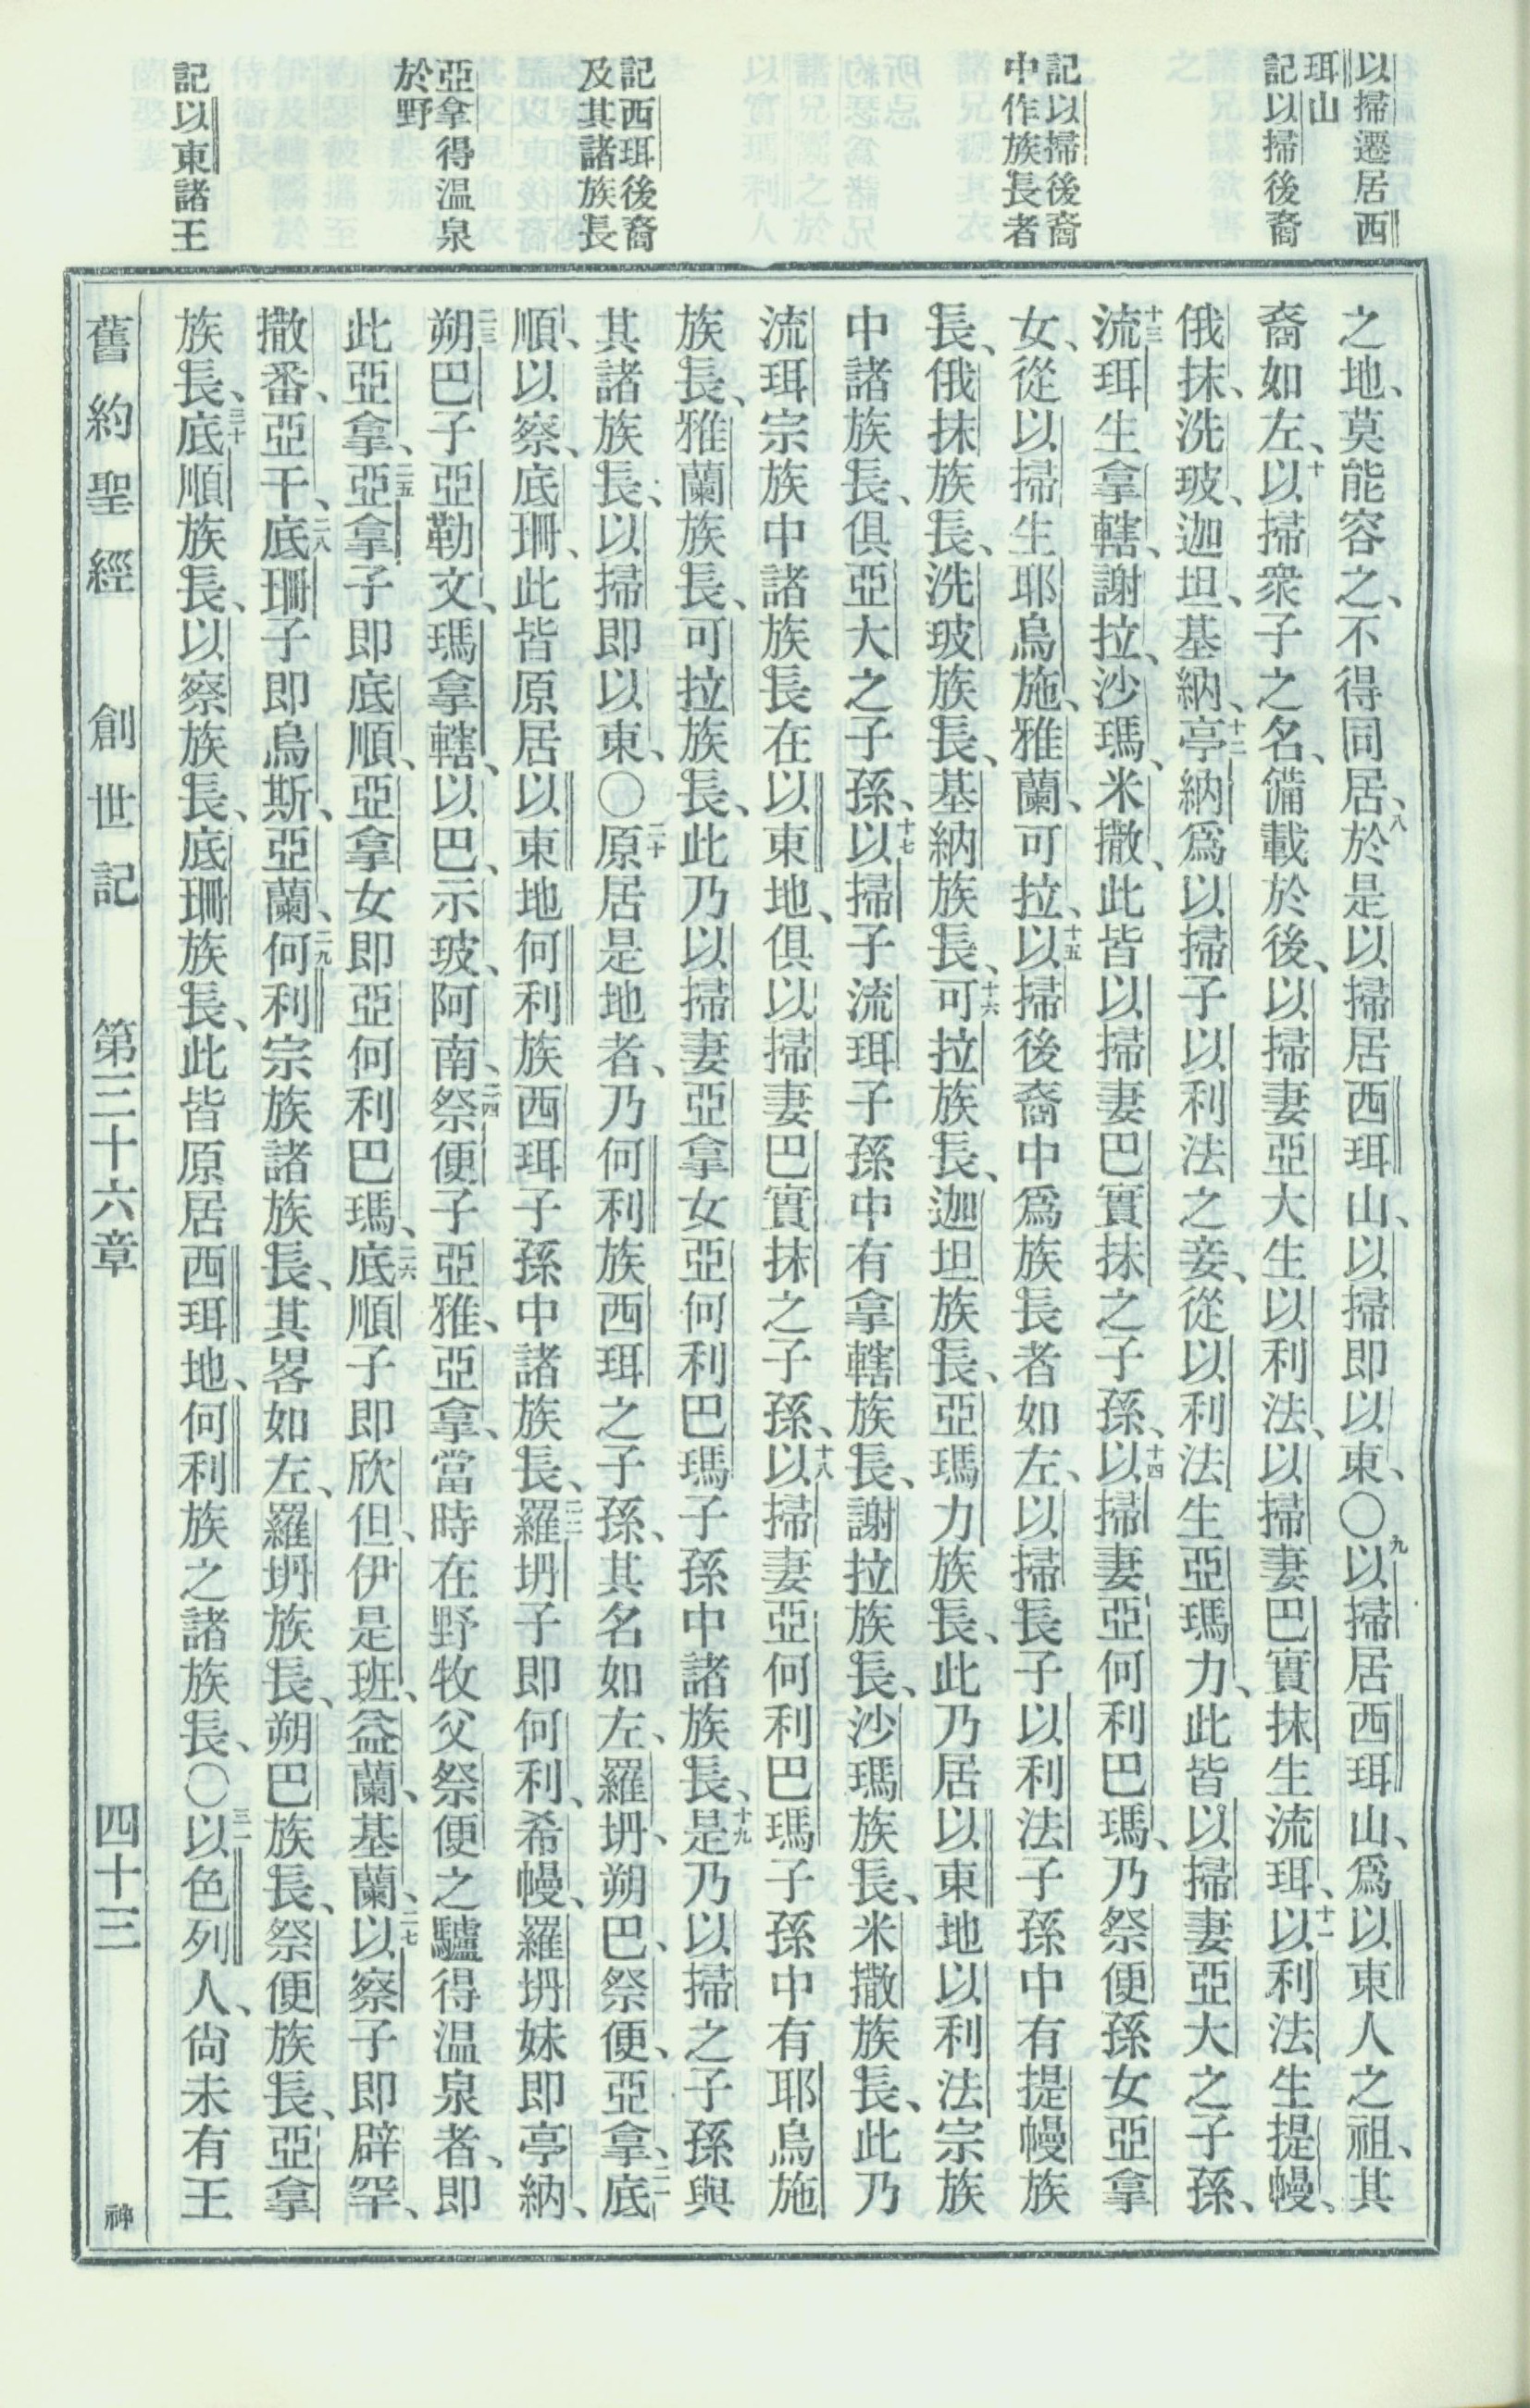 以掃遷居西
珥山
記以掃後裔
記以掃後裔
中作族長者
記西珥後裔
及其諸族長
亞拿得温泉
於野
記以東諸王
之地、莫能容之、不得同居、八於是以掃居西珥山、以掃即以東、〇九以掃居西珥山、爲以東人之祖、其
裔如左、十以掃衆子之名、備載於後、以掃妻亞大生以利法、以掃妻巴實抹生流珥、十一以利法生提幔、
俄抹、洗玻、迦坦、基納、十二亭納爲以掃子以利法之妾、從以利法生亞瑪力、此皆以掃妻亞大之子孫、
十三流珥生拿轄、謝拉、沙瑪、米撒、此皆以掃妻巴實抹之子孫、十四以掃妻亞何利巴瑪、乃祭便孫女亞拿
女、從以掃生耶烏施、雅蘭、可拉、十五以掃後裔中爲族長者如左、以掃長子以利法子孫中有提幔族
長、俄抹族長、洗玻族長、基納族長、十六可拉族長、迦坦族長、亞瑪力族長、此乃居以東地以利法宗族
中諸族長、俱亞大之子孫、十七以掃子流珥子孫中有拿轄族長、謝拉族長、沙瑪族長、米撒族長、此乃
流珥宗族中諸族長在以東地、俱以掃妻巴實抹之子孫、十八以掃妻亞何利巴瑪子孫中有耶烏施
族長、雅蘭族長、可拉族長、此乃以掃妻亞拿女亞何利巴瑪子孫中諸族長、十九是乃以掃之子孫與
其諸族長、以掃即以東、〇二十原居是地者、乃何利族西珥之子孫、其名如左、羅坍、朔巴、祭便、亞拿、二一底
順、以察、底珊、此皆原居以東地何利族西珥子孫中諸族長、二二羅坍子即何利、希幔、羅坍妹即亭納、
二三朔巴子亞勒文、瑪拿轄、以巴、示玻、阿南、二四祭便子亞雅、亞拿、當時在野牧父祭便之驢得温泉者、即
此亞拿、二五亞拿子即底順、亞拿女即亞何利巴瑪、二六底順子即欣但、伊是班、益蘭、基蘭、二七以察子即辟罕、
撒番、亞干、二八底珊子即烏斯、亞蘭、二九何利宗族諸族長、其畧如左、羅坍族長、朔巴族長、祭便族長、亞拿
族長、三十底順族長、以察族長、底珊族長、此皆原居西珥地、何利族之諸族長、〇三一以色列人、尙未有王
舊約聖經 創世記 第三十六章 四十三 神